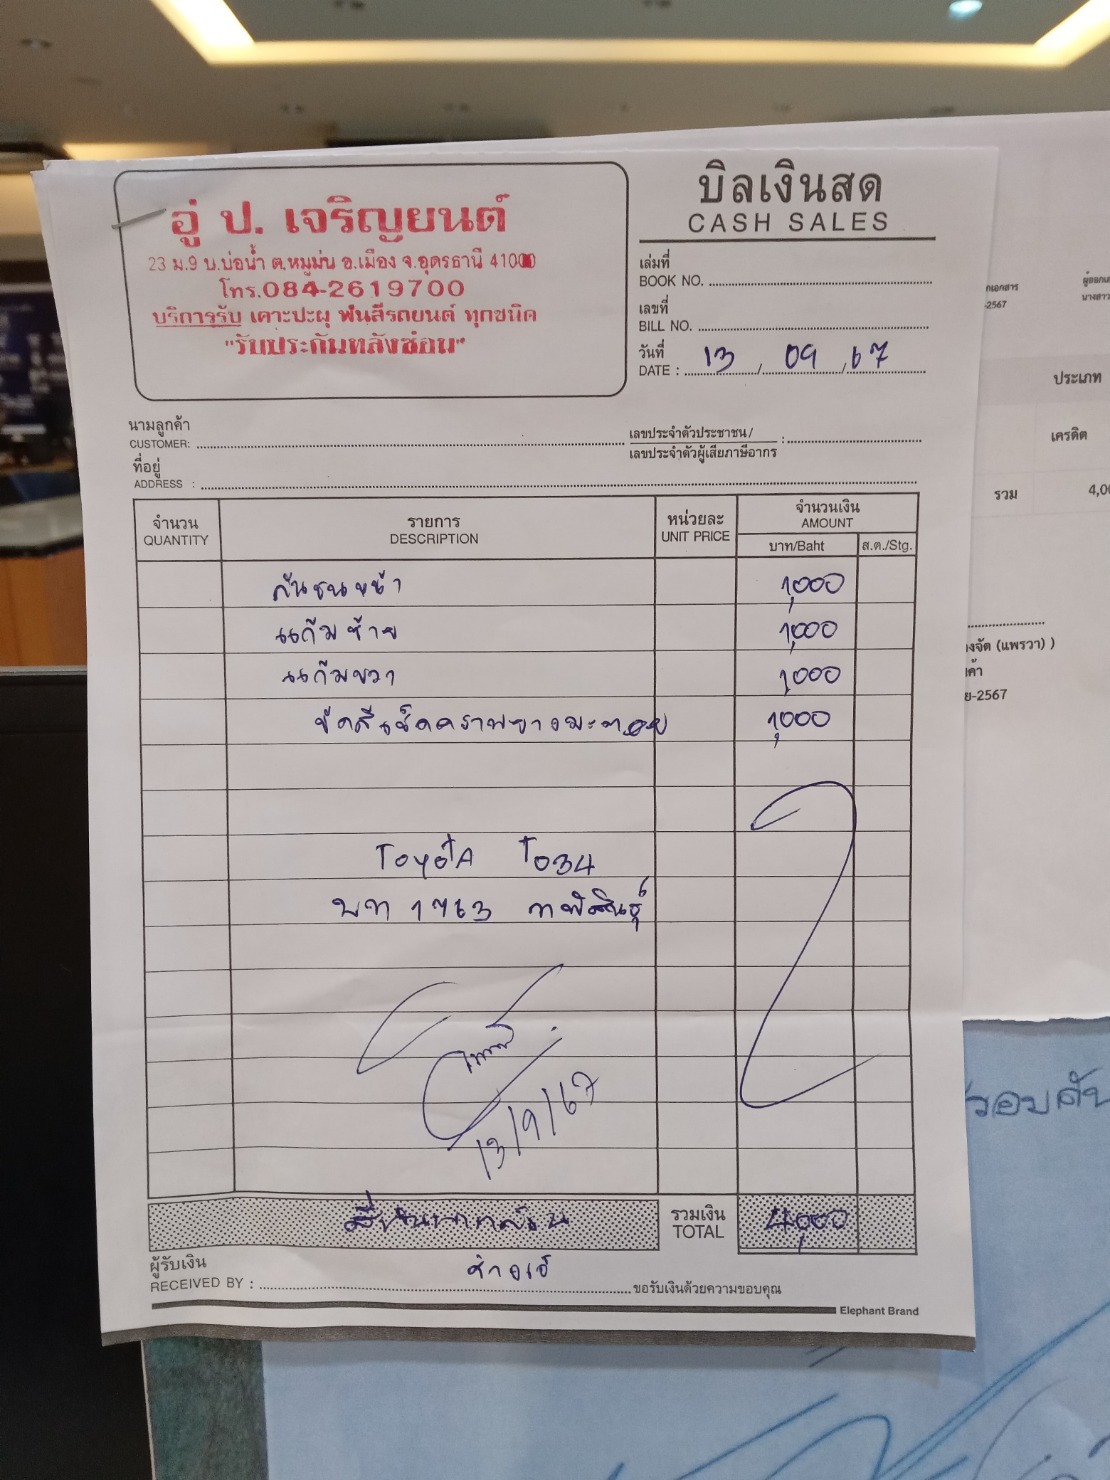 อู่ ป. เจริญยนต์
23 ม.9 บ.บ่อน้ำ ต.หมูม่น อ.เมือง จ.อุดรธานี 41000
โทร.084-2619700
บริการรับ เคาะปะผุ พ่นสีรถยนต์ ทุกชนิด
"รับประกันหลังซ่อม"
บิลเงินสด
CASH SALES
เล่มที่
BOOK NO.
เลขที่
BILL NO.
วันที่
DATE : 13 / 09 / 67
นามลูกค้า
CUSTOMER:
เลขประจำตัวประชาชน/
เลขประจำตัวผู้เสียภาษีอากร :
ที่อยู่
ADDRESS :
จำนวน
QUANTITY
รายการ
DESCRIPTION
หน่วยละ
UNIT PRICE
จำนวนเงิน
AMOUNT
บาท/Baht ส.ต./Stg.
กันชนหน้า 1,000
แก้มซ้าย 1,000
แก้มขวา 1,000
ขัดสีเช็ดคราบยางมะตอย 1,000
TOYOTA T034
บท 1763 กาฬสินธุ์
13/9/67
สี่พันบาทถ้วน
รวมเงิน
TOTAL
4,000
ผู้รับเงิน
RECEIVED BY :
ขอรับเงินด้วยความขอบคุณ
Elephant Brand
-2567
ประเภท
เครดิต
รวม
(แพรวา) )
-2567